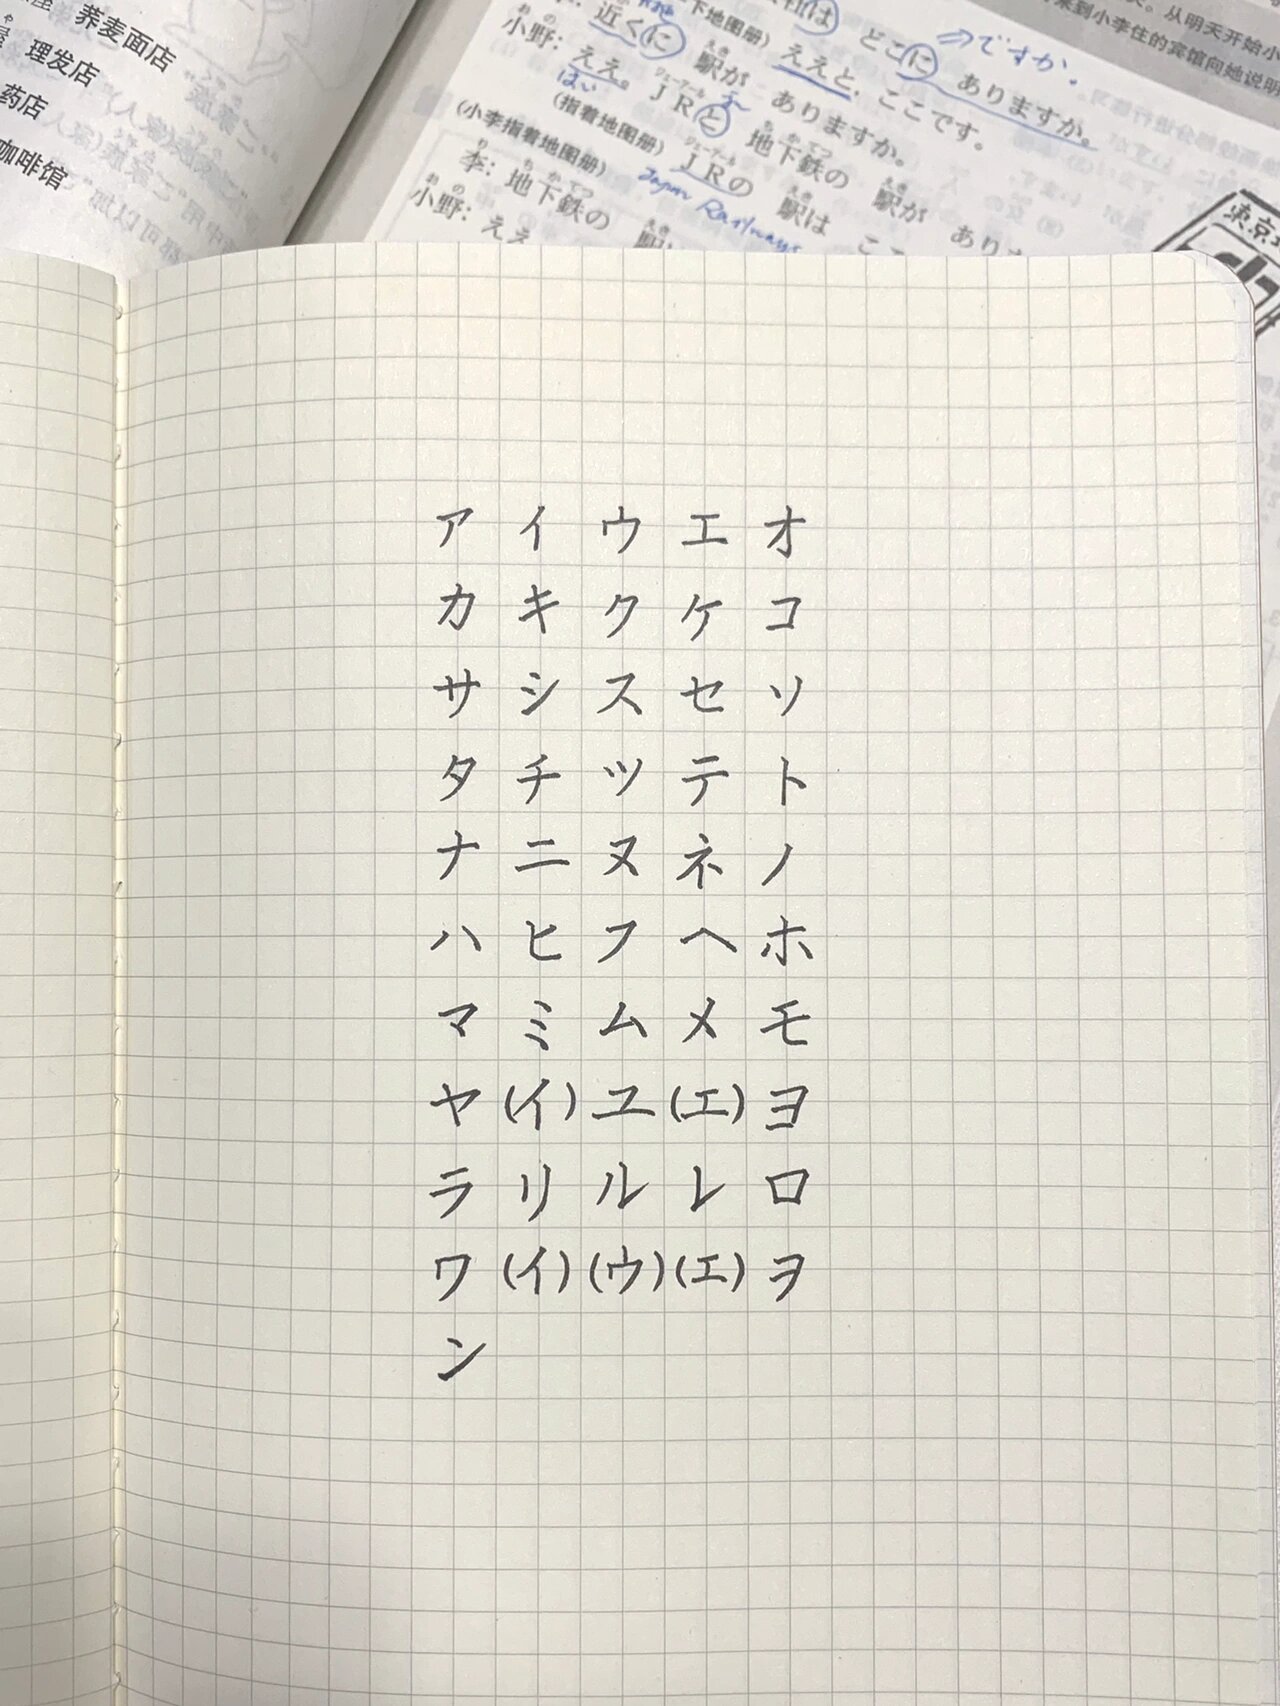 荞麦面店
理发店
药店
咖啡馆
どこに ありますか。
⇒ですか.
从明天开始小
来到小李住的宾馆向她说明
近くに 駅が ありますか。
小野: ええと、ここです。
ええ。JRと 地下鉄の 駅が あり
はい
(小李指着地图册)
(指着地图册)
李: 地下鉄の
JRの 駅は
Japan Railways
小野: ええ
東京
ア イ ウ エ オ
カ キ ク ケ コ
サ シ ス セ ソ
タ チ ツ テ ト
ナ ニ ヌ ネ ノ
ハ ヒ フ ヘ ホ
マ ミ ム メ モ
ヤ (イ) ユ (エ) ヨ
ラ リ ル レ ロ
ワ (イ) (ウ) (エ) ヲ
ン